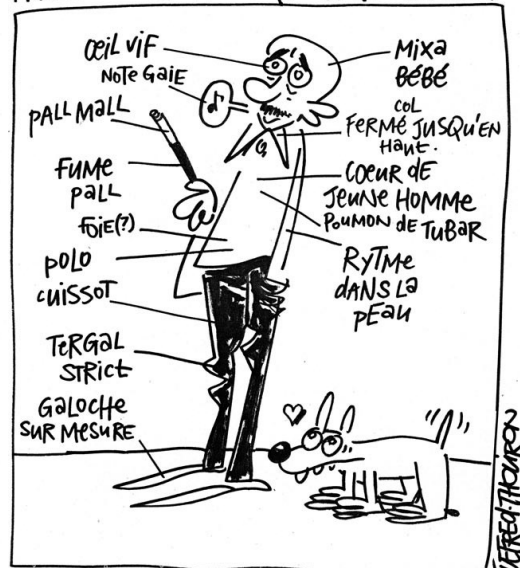 ŒIL VIF
NOTE GAIE
PALL MALL
FUME
PALL
FOIE(?)
POLO
CUISSOT
TERGAL
STRICT
GALOCHE
SUR MESURE
MIXA
BÉBÉ
COL
FERMÉ JUSQU'EN
HAUT.
COEUR dE
JEUNE HOMME
POUMON dE TUBAR
RYTME
dANS LA
PEAU